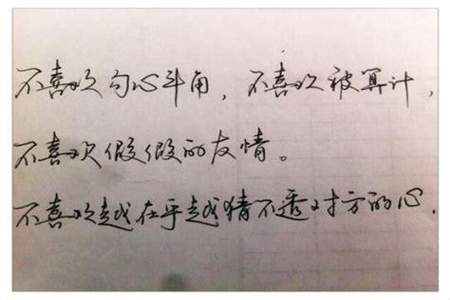 不喜欢勾心斗角，不喜欢被算计，
不喜欢假假的友情。
不喜欢越在乎越猜不透对方的心.